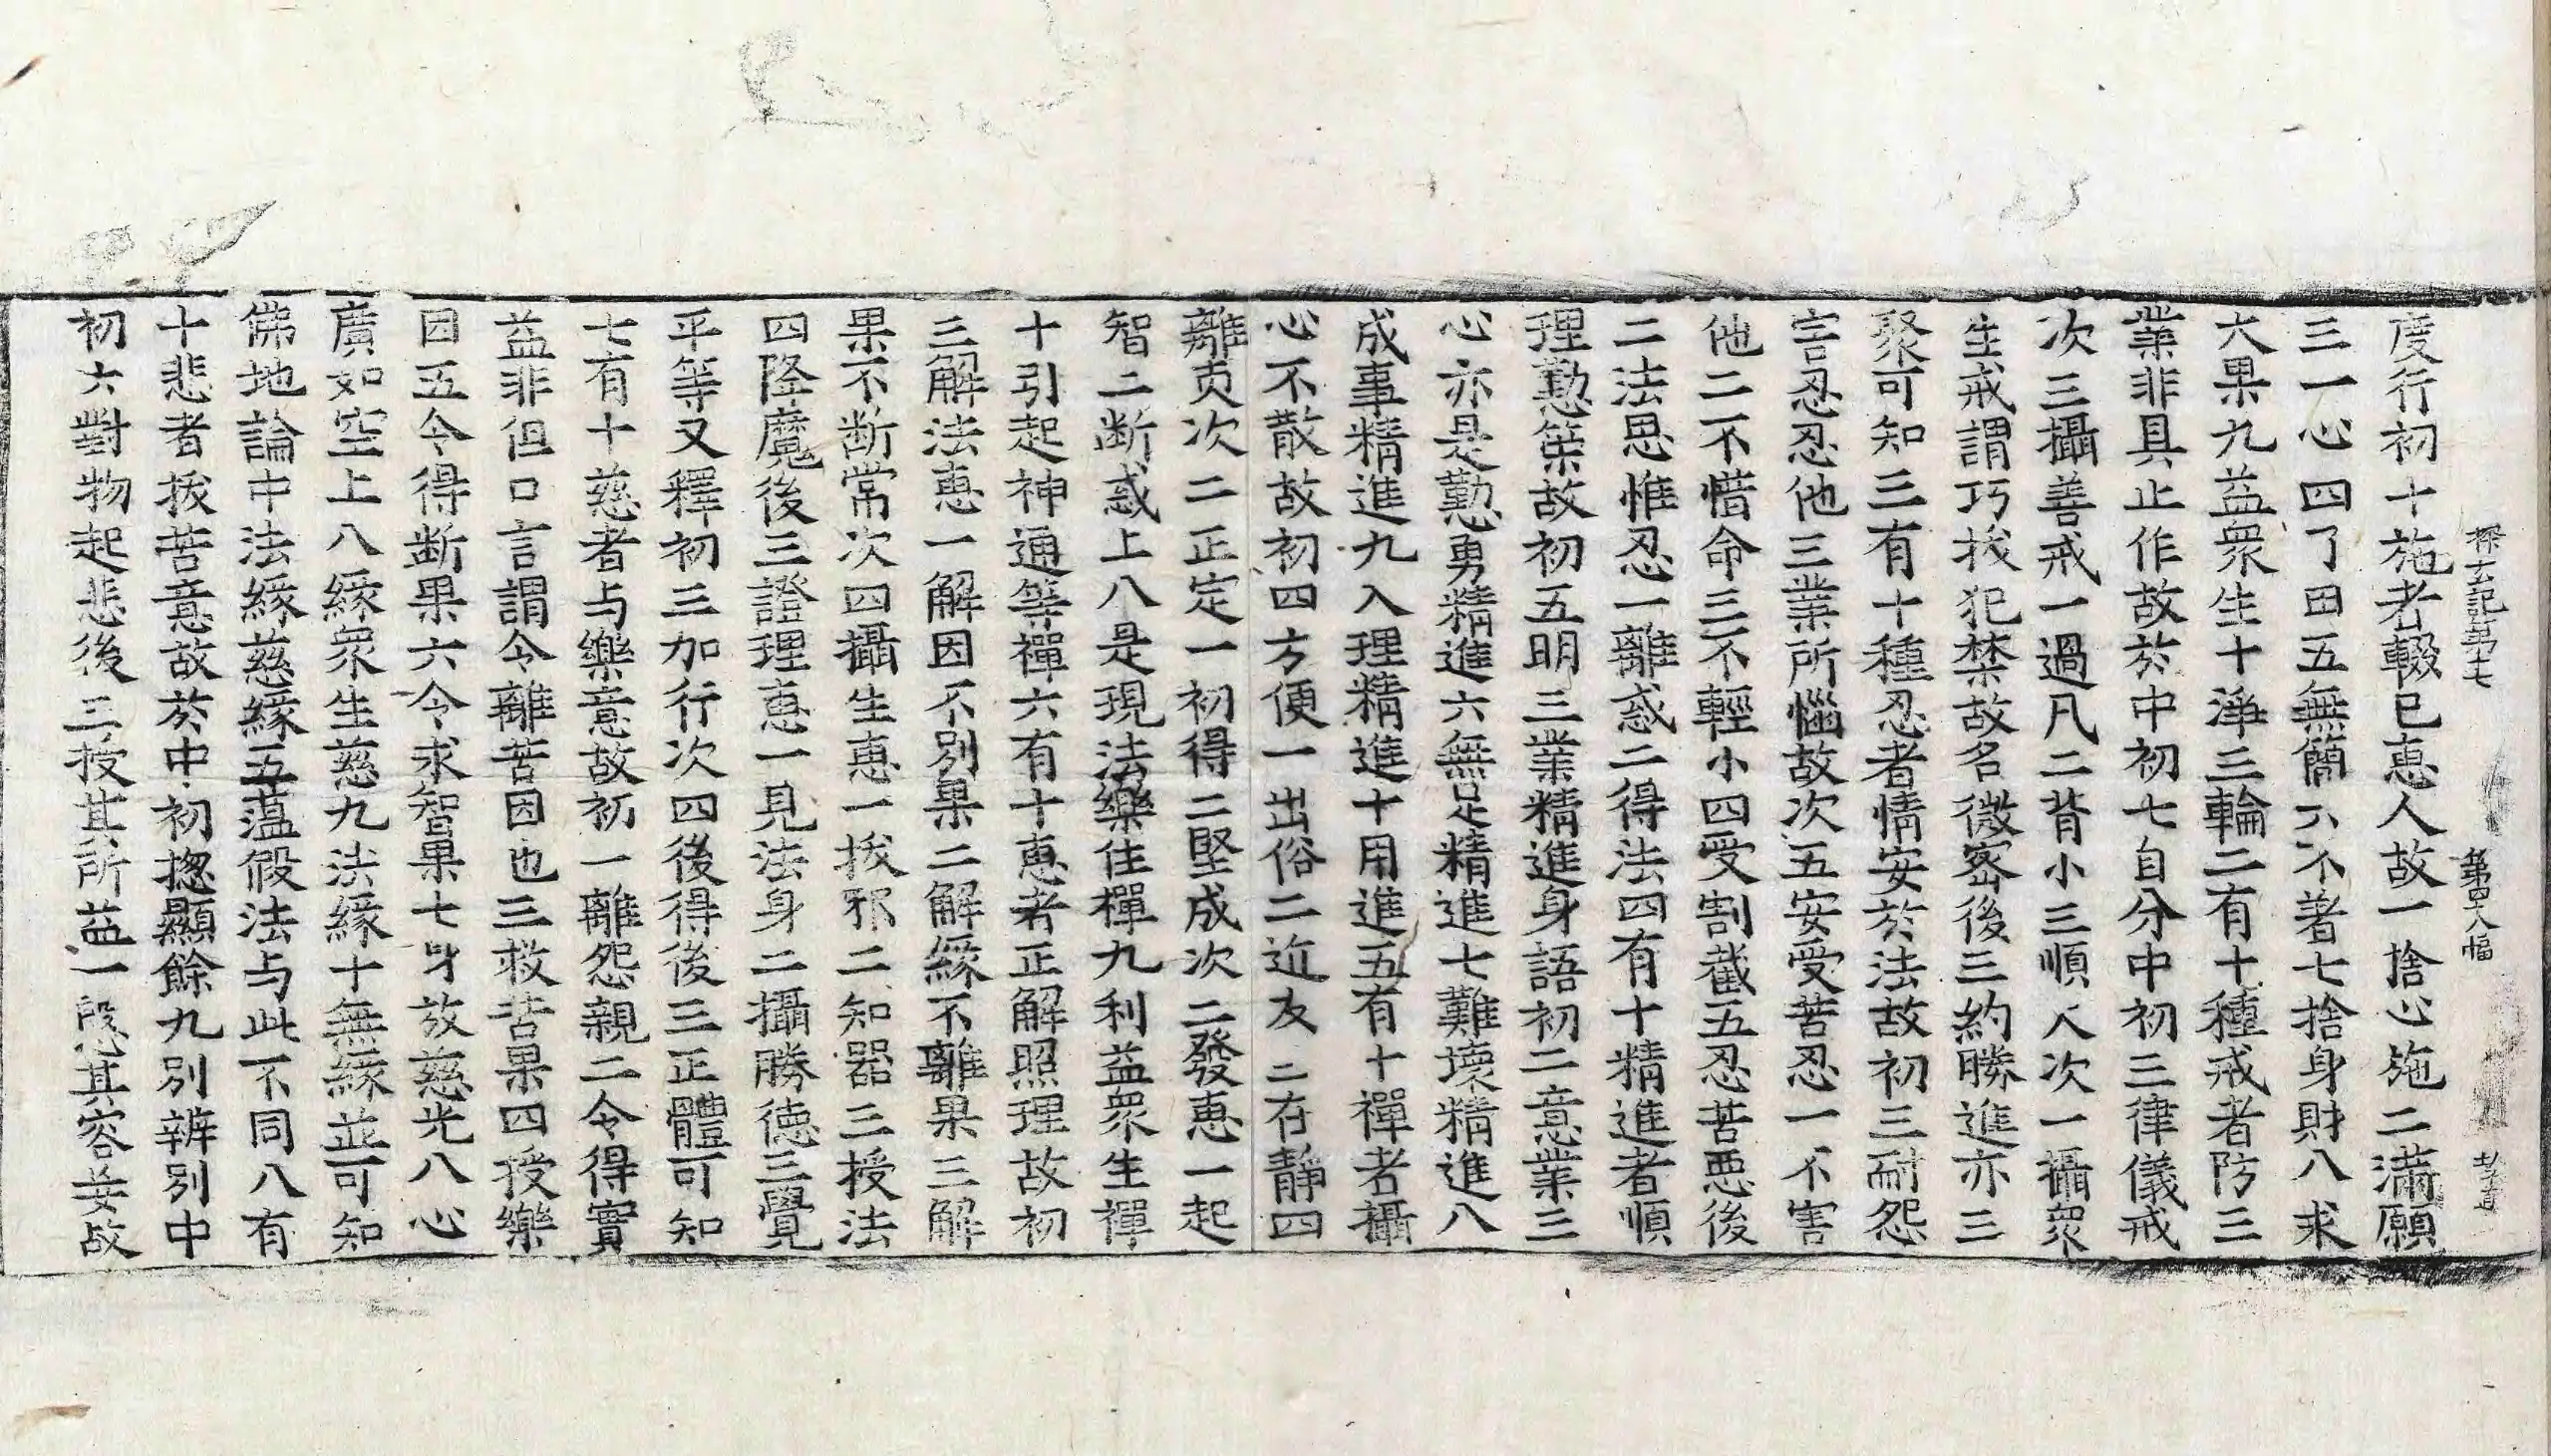 探玄記第七 第四十八幅 孝直
度行初十施者輟已惠人故一捨心施二滿願
三一心四了因五無簡六不著七捨身財八求
大果九益衆生十淨三輪二有十種戒者防三
業非具止作故於中初七自分中初三律儀戒
次三攝善戒一過凡二背小三順人次一攝衆
生戒謂巧拔犯禁故名微密後三約勝進亦三
聚可知三有十種忍者情安於法故初三耐怨
害忍忍他三業所惱故次五安受苦忍一不害
他二不惜命三不輕小四受割截五忍苦惡後
二法思惟忍一離惑二得法四有十精進者順
理懃策故初五明三業精進身語初二意業三
心亦是懃勇精進六無足精進七難壞精進八
成事精進九入理精進十用進五有十禪者攝
心不散故初四方便一出俗二近友二在靜四
離次二正定一初得二堅成次二發惠一起
智二断惑上八是現法樂住禪九利益衆生禪
十引起神通等禪六有十惠者正解照理故初
三解法惠一解因不別果二解緣不離果三解
果不断常次四攝生惠一拔邪二知器三授法
四降魔後三證理惠一見法身二攝勝德三覺
平等又釋初三加行次四後得後三正體可知
七有十慈者与樂意故初一離怨親二令得實
益非但口言謂令離苦因也三救苦果四授樂
因五令得断果六令求智果七身放慈光八心
廣如空上八緣衆生慈九法緣十無緣並可知
佛地論中法緣慈緣五薀假法与此不同八有
十悲者拔苦意故於中初揔顯餘九別辨別中
初六對物起悲後三授其所益一愍其容妄故